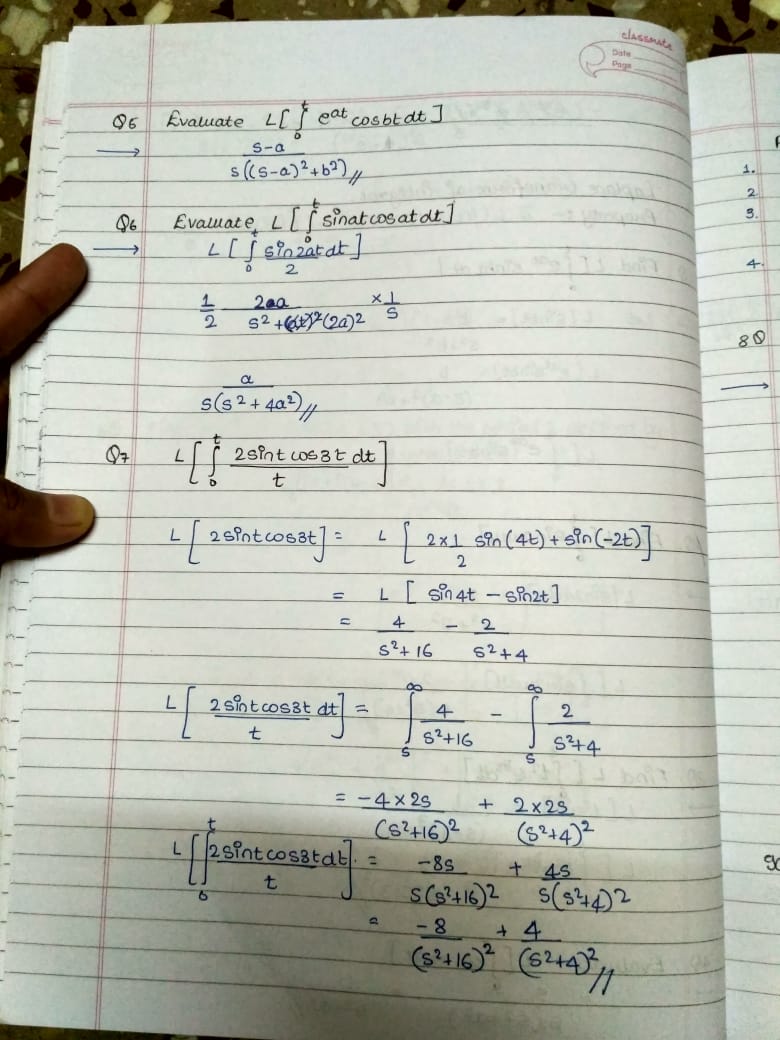 classmate
Date
Page
Q5 Evaluate L[∫₀ᵗ eᵃᵗ cosbt dt]
→ s-a / s((s-a)²+b²) //
Q6 Evaluate L[∫₀ᵗ sinat cosat dt]
→ L[∫₀ᵗ sin2at dt / 2]
1/2 2a / s² + (2a)² × 1/s
a / s(s² + 4a²) //
Q7 L[∫₀ᵗ 2sint cos3t dt / t]
L[2sint cos3t] = L[2×1/2 sin(4t) + sin(-2t)]
= L[sin4t - sin2t]
= 4 / s²+16 - 2 / s²+4
L[2sint cos3t dt / t] = ∫ₛ^∞ 4 / s²+16 - ∫ₛ^∞ 2 / s²+4
= -4×2s / (s²+16)² + 2×2s / (s²+4)²
L[∫₀ᵗ 2sint cos3t dt / t] = -8s / s(s²+16)² + 4s / s(s²+4)²
= -8 / (s²+16)² + 4 / (s²+4)² //
1.
2.
3.
4.
8Q
→